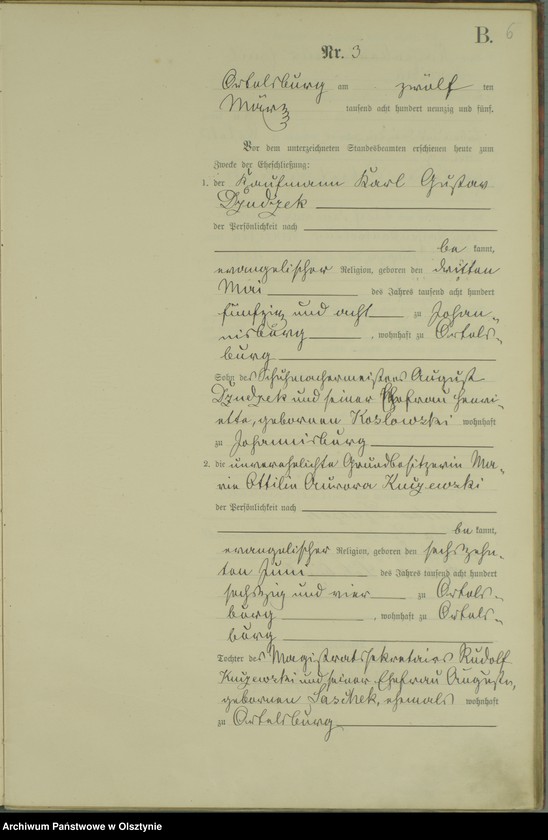 B. 6
Nr. 3
Ortelsburg am zwölf ten
März tausend acht hundert neunzig und fünf.
Vor dem unterzeichneten Standesbeamten erschienen heute zum
Zwecke der Eheschließung:
1. der Kaufmann Karl Gustav
Dzudzek
der Persönlichkeit nach
be kannt,
evangelischer Religion, geboren den dritten
Mai des Jahres tausend acht hundert
fünfzig und acht zu Johan-
nisburg, wohnhaft zu Ortels-
burg
Sohn des Schuhmachermeisters August
Dzudzek und seiner Ehefrau Henri-
ette, gebornen Kozlowski wohnhaft
zu Johannisburg
2. die unverehelichte Grundbesitzerin Ma-
rie Ottilie Aurora
der Persönlichkeit nach
be kannt,
evangelischer Religion, geboren den sechszehn-
ten Juni des Jahres tausend acht hundert
sechszig und vier zu Ortels-
burg, wohnhaft zu Ortels-
burg
Tochter des Magistratssekretairs Rudolf
und seiner Ehefrau Auguste,
gebornen Saschek, ehemals wohnhaft
zu Ortelsburg
Archiwum Państwowe w Olsztynie